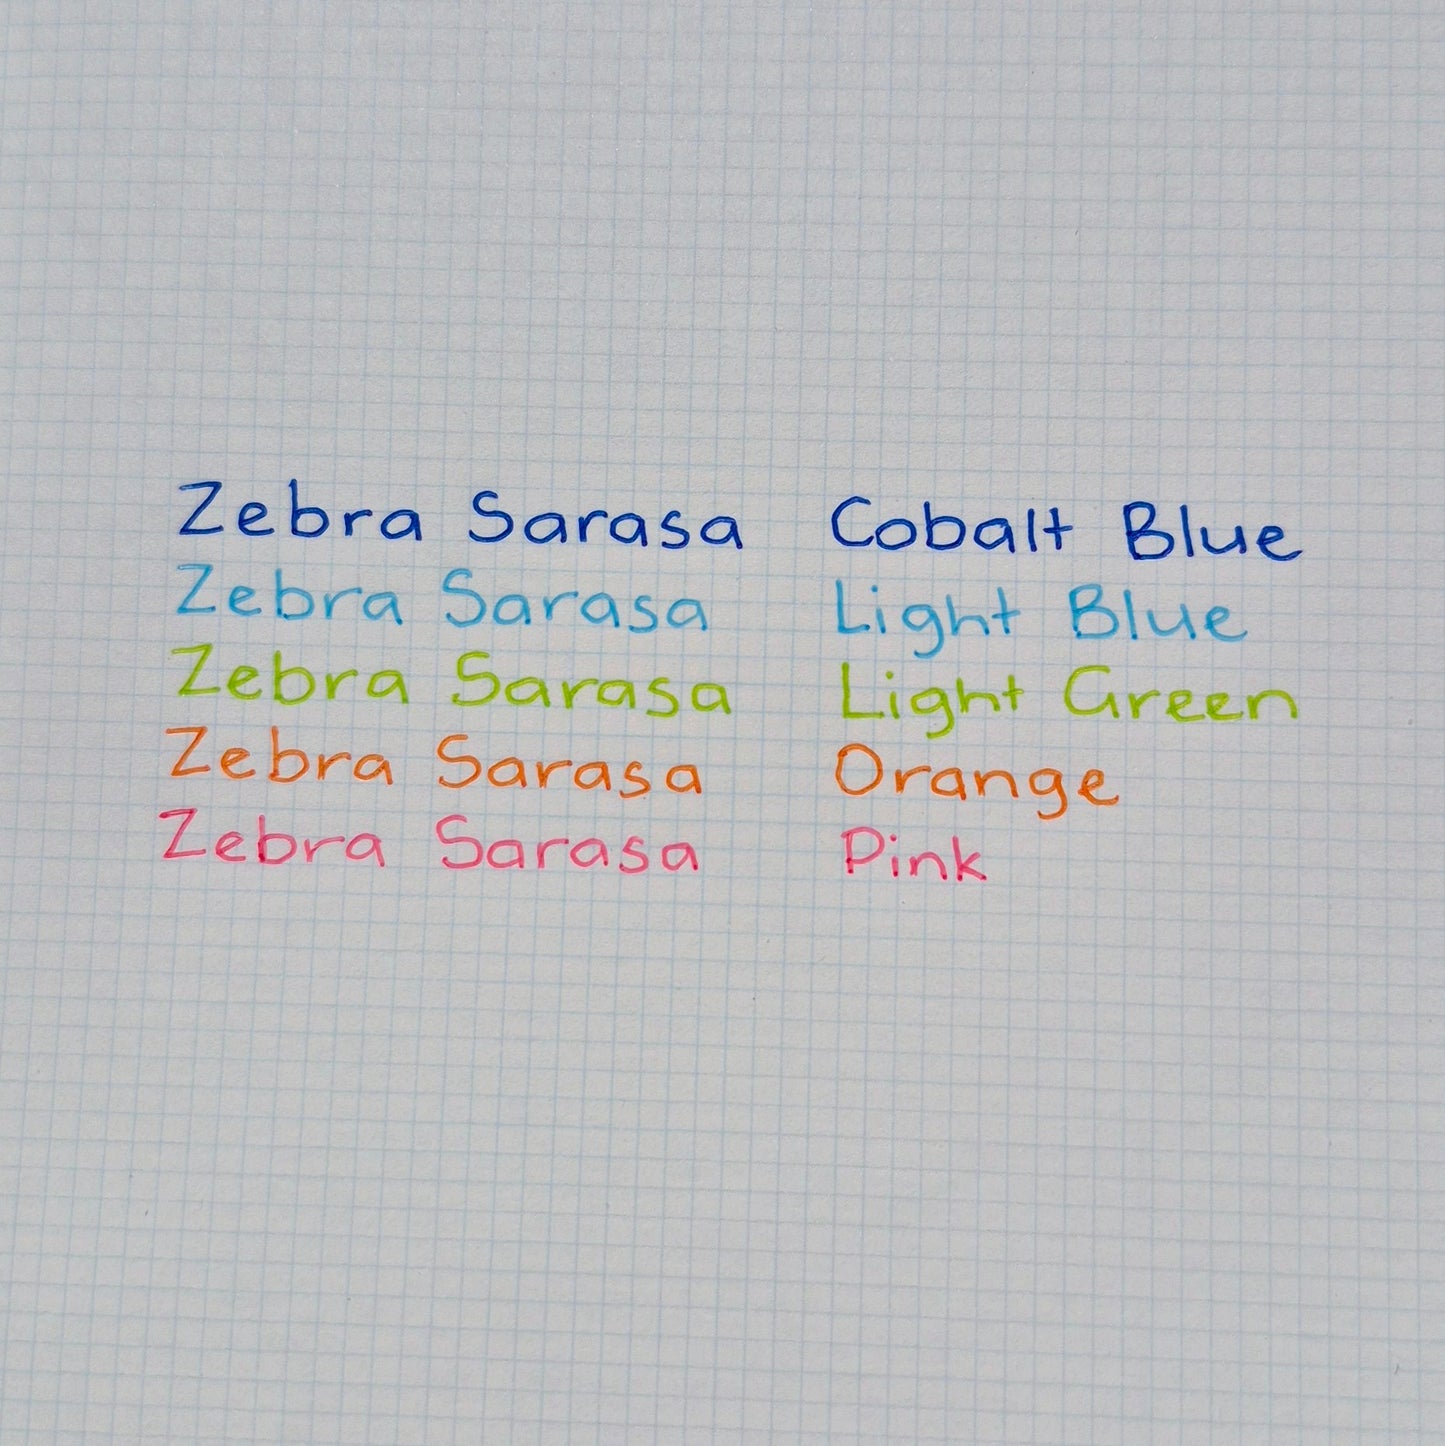 Zebra Sarasa Cobalt Blue
Zebra Sarasa Light Blue
Zebra Sarasa Light Green
Zebra Sarasa Orange
Zebra Sarasa Pink